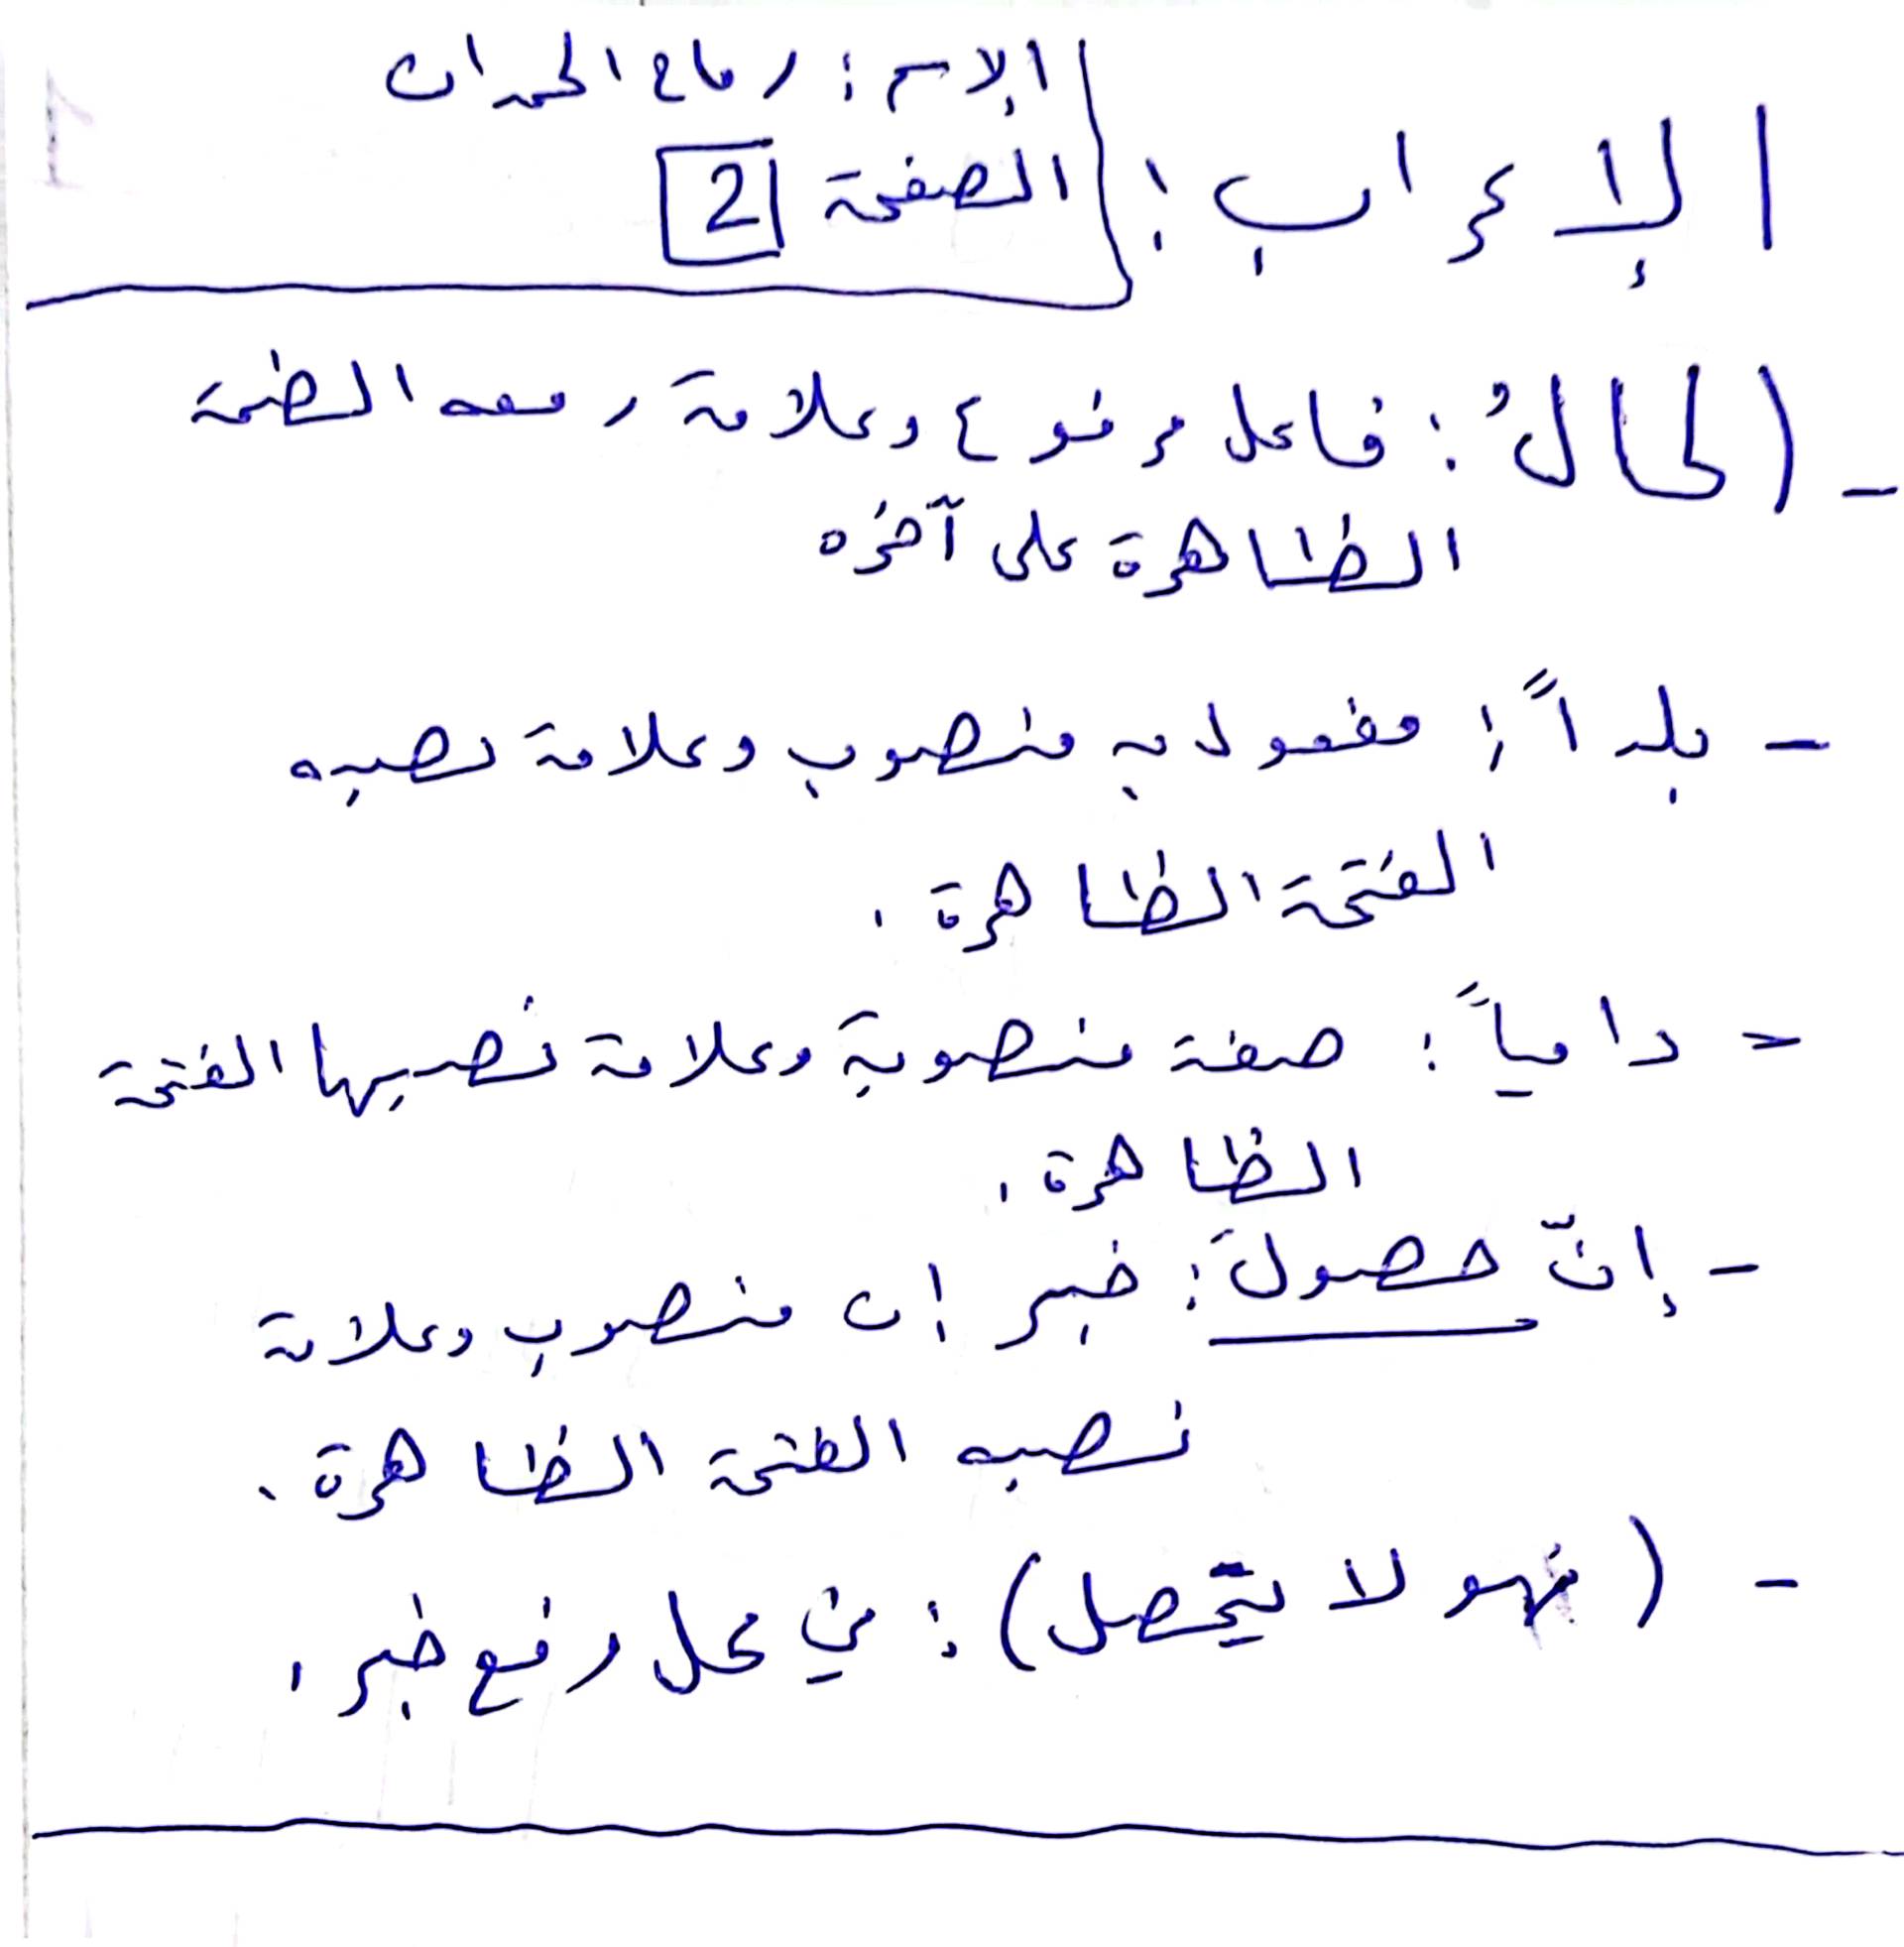 الاسم: رماح الحمدان
الصفحة 2
الإعراب:
- الحالُ: فاعل مرفوع وعلامة رفعه الضمة
الظاهرة على آخره
- بلداً: مفعول به منصوب وعلامة نصبه
الفتحة الظاهرة.
= دامياً: صفة منصوبة وعلامة نصبها الفتحة
الظاهرة.
- إنّ حصولَ: خبر إن منصوب وعلامة
نصبه الفتحة الظاهرة.
- (فهو لا يتحصل): في محل رفع خبر.